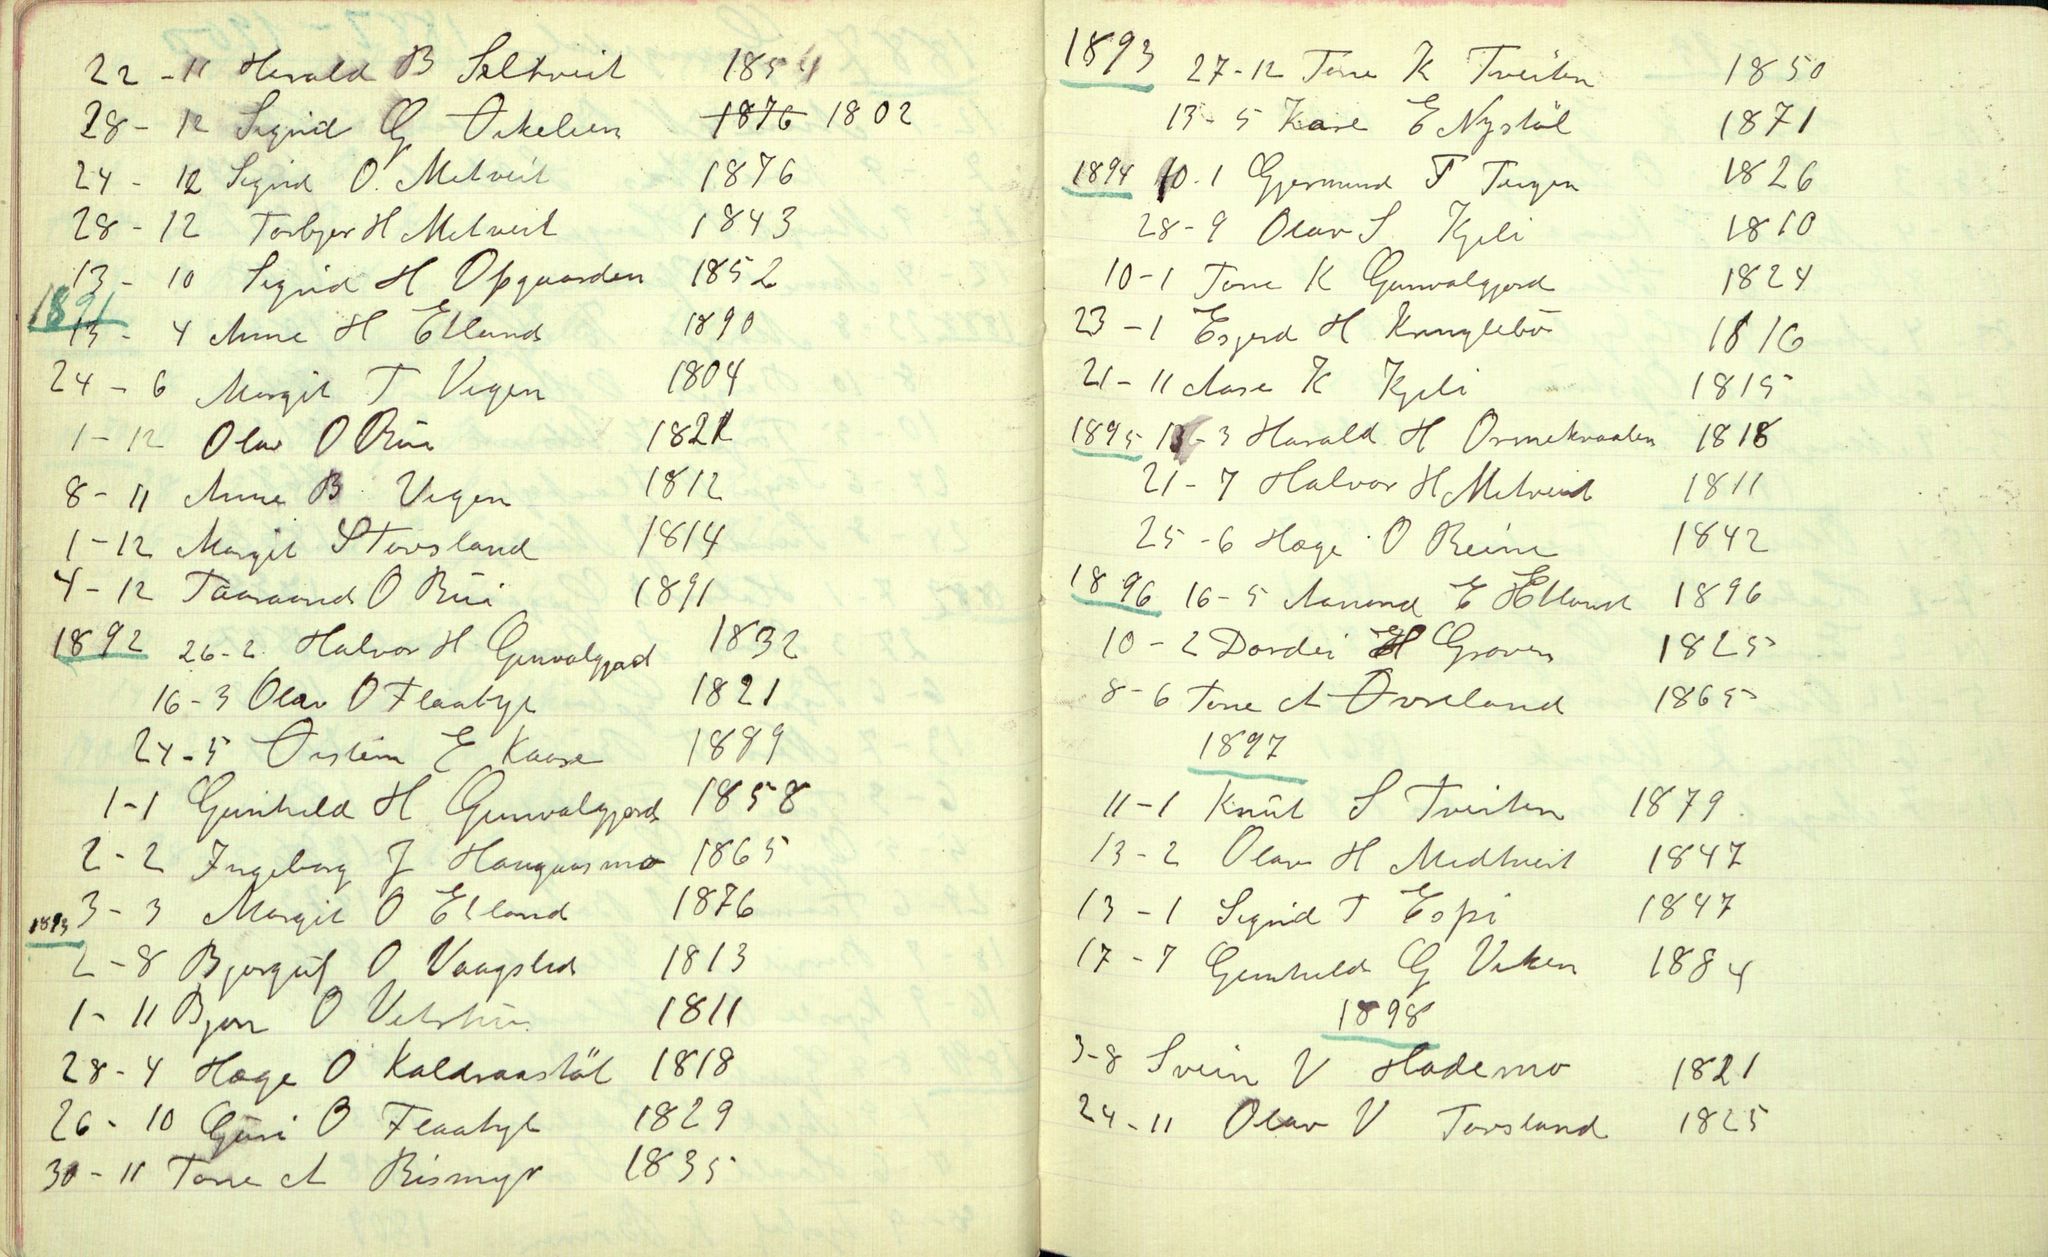 22 - 11 Harald B 1854
28 - 12 Sigrid G 1876 1802
24 - 12 Sigrid O. Metveit 1876
28 - 12 Torbjør H Metveit 1843
13 - 10 Sigrid H Opgaarden 1852
1891
13 - 4 Anne H Etland 1890
24 - 6 Margit T Vegen 1804
1 - 12 Olav O Rui 1821
8 - 11 Anne B Vegen 1812
1 - 12 Margit S Torsland 1814
4 - 12 Taaraand O Bui 1891
1892 26-2 Halvor H Gunvalgjord 1832
16 - 3 Olav O Flaatyl 1821
24 - 5 Øistein E Kaase 1889
1-1 Gunhild H Gunvalgjord 1858
2 - 2 Ingeborg J 1865
3 - 3 Margit O Etland 1876
1893
2 - 8 Bjorguf O Vaagsled 1813
1 - 11 Bjørn O 1811
28 - 4 Hæge O Kaldraastøl 1818
26 - 10 Guri O Flaatyl 1829
30 - 11 Tone A Rismyr 1835
1893 27-12 Tone K Tveiten 1850
13 - 5 Kare E Nystøl 1871
1894 10.1 Gjermund T Teigen 1826
28 - 9 Olav S Kyli 1810
10 - 1 Tone K Gunvalgjord 1824
23 - 1 H Krunglebø 1816
21 - 11 Aase K Kyli 1815
1895 13-3 Harald H Ormekraaten 1818
21 - 7 Halvor H Metveit 1811
25 - 6 Hæge O Reine 1842
1896 16-5 Aanond E Etland 1896
10 - 2 Dordei H Groven 1825
8-6 Tone A Øvreland 1865
1897
11 - 1 Knut S Tveiten 1879
13 - 2 Olav H Medtveit 1847
13 - 1 Sigrid T Espi 1847
17 - 7 Gunhild G Viken 1884
1898
3-8 Svein V Hademo 1821
24 - 11 Olav V Torsland 1825